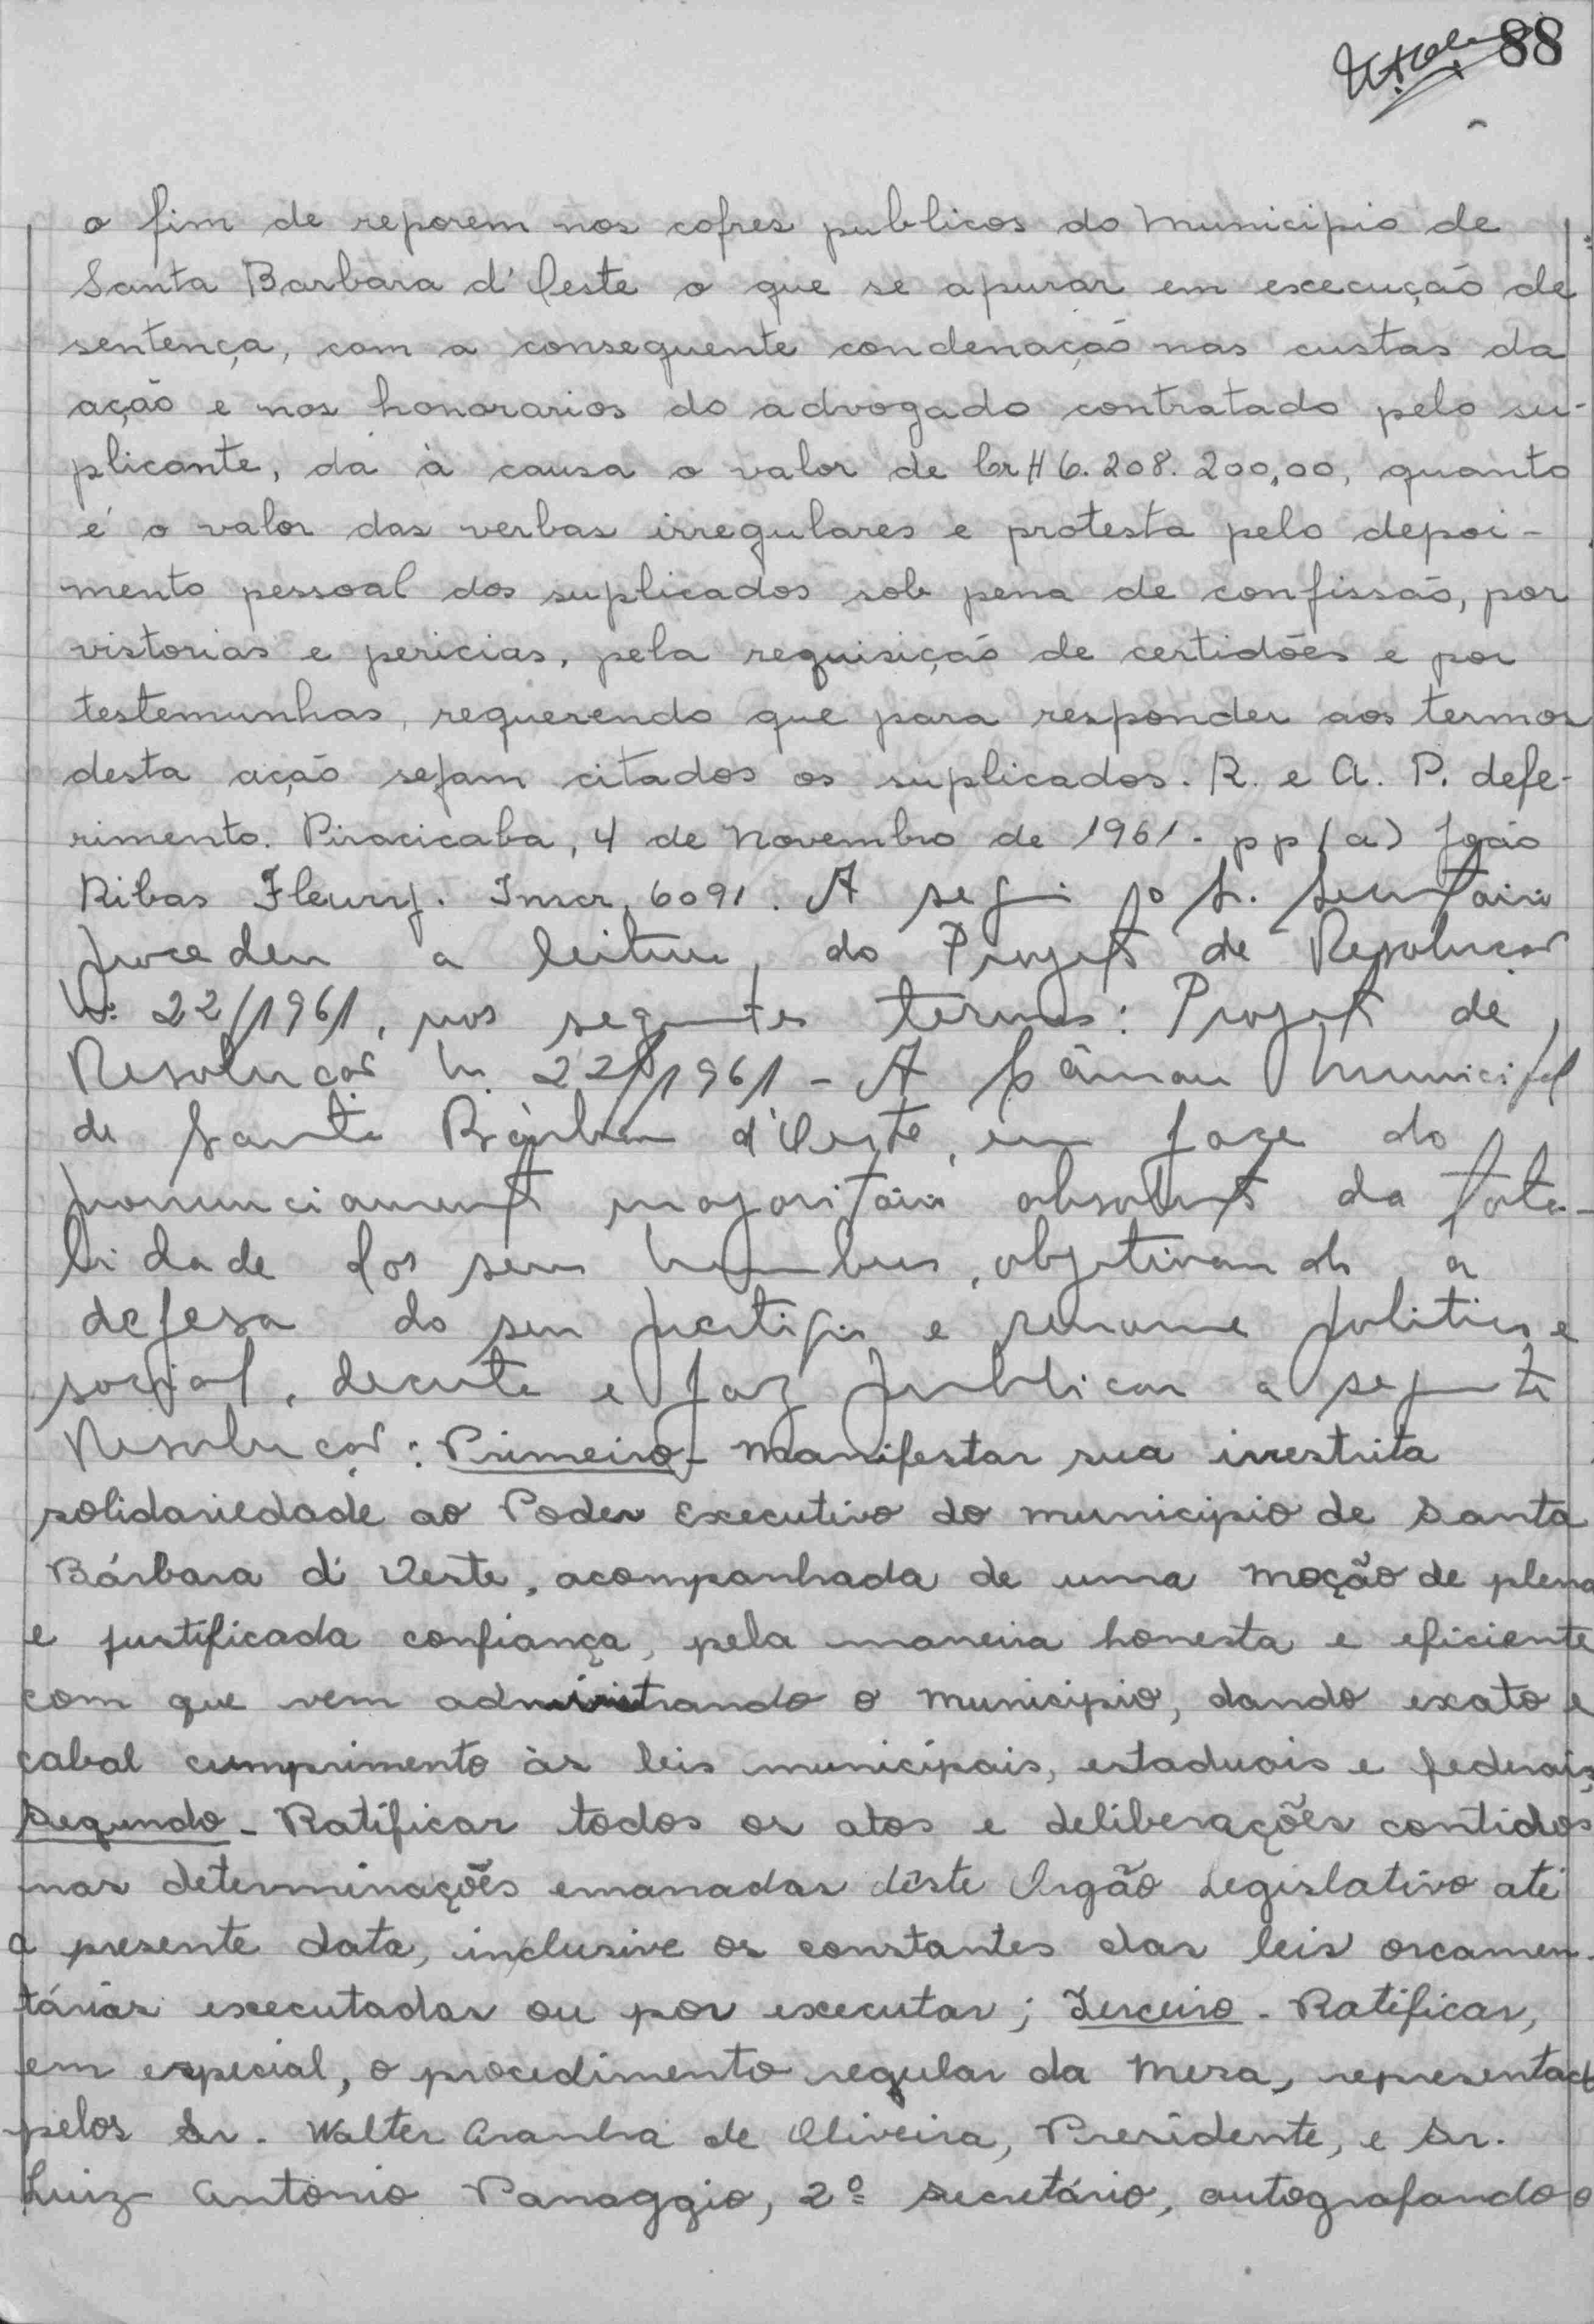 88
o fim de reporem nos cofres publicos do Municipio de
Santa Barbara d'Oeste o que se apurar em execução de
sentença, com a consequente condenação nas custas da
ação e nos honorarios do advogado contratado pelo su-
plicante, da à causa o valor de Cr$ 6.208.200,00, quanto
é o valor das verbas irregulares e protesta pelo depoi-
mento pessoal dos suplicados sob pena de confissão, por
vistorias e pericias, pela requisição de certidões e por
testemunhas, requerendo que para responder aos termos
desta ação sejam citados os suplicados. R. e A. P. defe-
rimento. Piracicaba, 4 de Novembro de 1961. pp (a) João
Ribas Fleury. Inscr. 6091. A seguir o Sr. Secretário
procedeu a leitura do Projeto de Resolução
Nº 22/1961, nos seguintes termos: Projeto de
Resolução N. 22/1961 - A Câmara Municipal
de Santa Bárbara d'Oeste, em face do
pronunciamento majoritário absoluto da tota-
lidade dos seus membros, objetivando a
defesa do seu prestígio e renome politico e
social, decreta e faz publicar a seguinte
Resolução: Primeiro - Manifestar sua irrestrita
solidariedade ao Poder Executivo do municipio de Santa
Bárbara d'Oeste, acompanhada de uma moção de plena
e justificada confiança, pela maneira honesta e eficiente
com que vem administrando o municipio, dando exato e
cabal cumprimento às leis municipais, estaduais e federais,
Segundo - Ratificar todos os atos e deliberações contidos
nas determinações emanadas dêste Orgão Legislativo até
a presente data, inclusive os constantes das leis orcamen-
tárias executadas ou por executar; Terceiro - Ratificar,
em especial, o procedimento regular da Mesa, representad
pelos Sr. Walter Aranha de Oliveira, Presidente, e Sr.
Luiz Antonio Panaggio, 2º secretário, autografando o